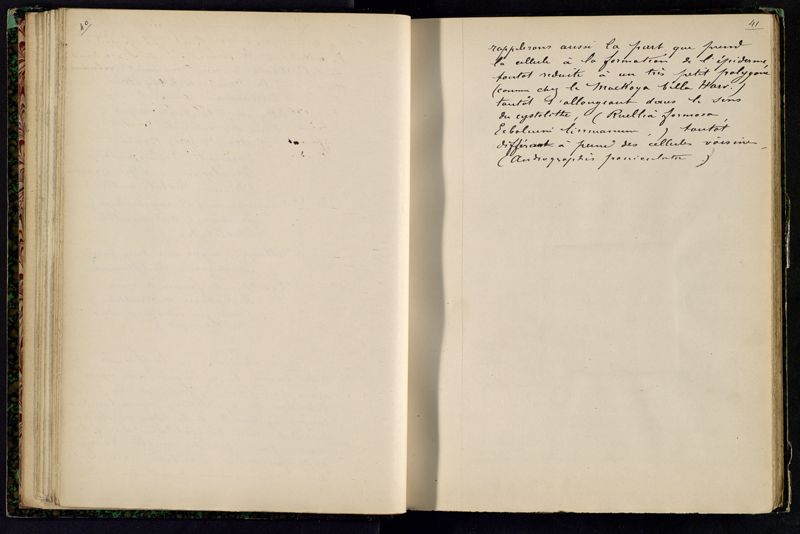 40
41
rappelerons aussi la part que prend
la cellule à la formation de l'épiderme,
tantôt réduite à un très petit polygone
(comme chez le Mackoya bella Harv.)
tantôt s'allongeant dans le sens
du cystolithe, (Ruellia formosa,
Ecbolium linneanum,) tantôt
différant à peine des cellules voisines,
(Andrographis paniculata)